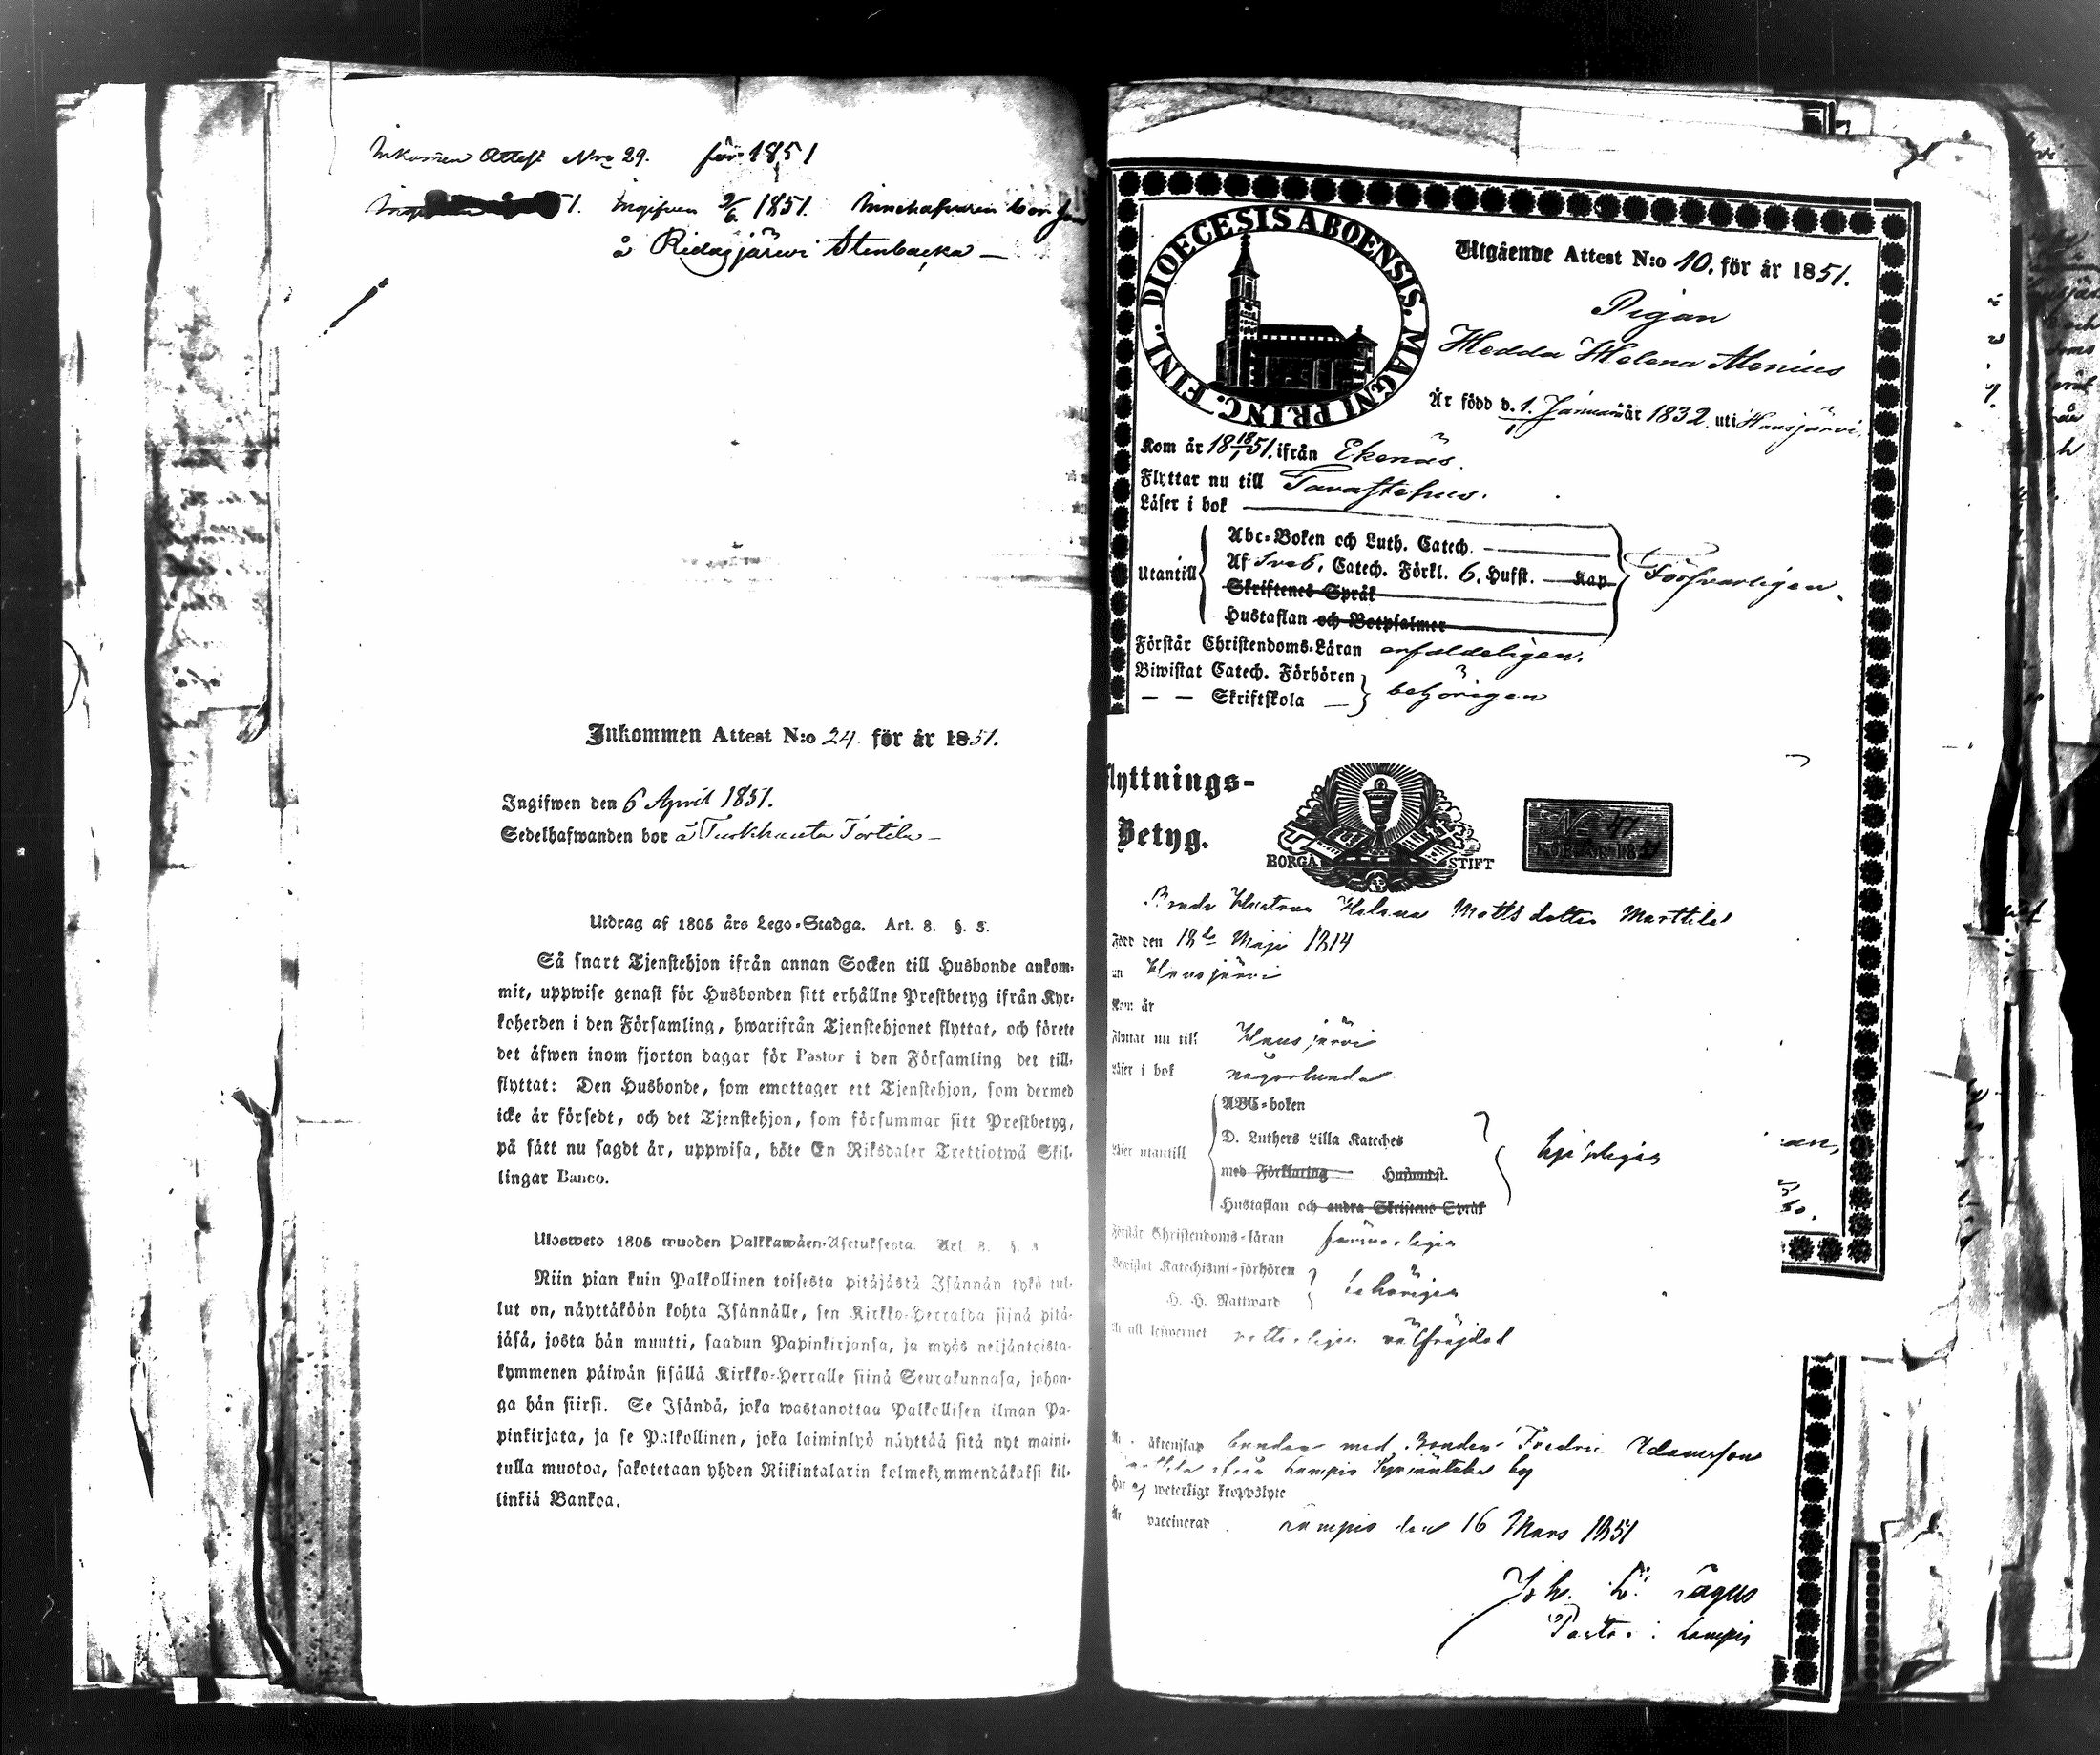 Inkommen Attest Nro 29. för 1851
51. Ingifven 2/6 1851. Innehafvaren bor
å Ridasjärwi Stenbacka —
Inkommen Attest N:o 24 för år 1851.
Ingifwen den 6 April 1851.
Sedelhafwanden bor å Turkhauta Tortila —
Utdrag af 1805 års Lego-Stadga. Art. 8. §. 5.
Så snart Tjenstehjon ifrån annan Socken till Husbonde ankom-
mit, uppwise genast för Husbonden sitt erhållne Prestbetyg ifrån Kyr-
koherden i den Församling, hwarifrån Tjenstehjonet flyttat, och förete
det äfwen inom fjorton dagar för Pastor i den Församling det till-
flyttat: Den Husbonde, som emottager ett Tjenstehjon, som dermed
icke är försedt, och det Tjenstehjon, som försummar sitt Prestbetyg,
på sätt nu sagdt är, uppwisa, böte En Riksdaler Trettiotwå Skil-
lingar Banco.
Ulosweto 1805 wuoden Palkkawäen-Asetuksesta. Art. 8. §.
Niin pian kuin Palkollinen toisesta pitäjästä Isännän tykö tul-
lut on, näyttäköön kohta Isännälle, sen Kirkko-Herralda siinä pitä-
jäsä, josta hän muutti, saadun Papinkirjansa, ja myös neljäntoista-
kymmenen päiwän sisällä Kirkko-Herralle siinä Seurakunnasa, johon-
ga hän siirsi. Se Isändä, joka wastanottaa Palkollisen ilman Pa-
pinkirjata, ja se Palkollinen, joka laiminlyö näyttää sitä nyt maini-
tulla muotoa, sakotetaan yhden Riikintalarin kolmekymmendäkaksi kil-
linkiä Bankoa.
DIOECESIS ABOENSIS. MAGNI PRINC. FINL.
Utgående Attest N:o 10. för år 1851.
Pigan
Hedda Helena Alenius
Är född d. 1. Januari år 1832. uti Hausjärvi.
Kom år 18 18/1 51. ifrån Ekenäs.
Flyttar nu till Tavastehus.
Läser i bok
Utantill
Abc-Boken och Luth. Catech.
Af Sveb. Catech. Förkl. 6. Hufst. Kap
Skriftenes Språk
Hustaflan och Botpsalmer
Försvarligen.
Förstår Christendoms-Läran enfaldeligen.
Biwistat Catech. Förhören
— — Skriftskola —
behörigen
lyttnings-
Betyg.
BORGÅ STIFT
N 47
FÖR ÅR 1851
Helena Matts dotter Marttila
Född den 18de Maji 1814
Hausjärvi
Kom år
Flyttar nu till Hausjärvi
Läser i bok någorlunda
ABC-boken
D. Luthers Lilla Kateches
med Förklaring Husandl.
Hustaflan och andra Skriftens Språk
Läser utantill
Förstår Christendoms-läran försvarligen
Bewistat Katechismi-förhören
H. H. Nattward
behörigen
välfräjdad
bunden med Bonden Fredric Adamsson
ifrån Lampis by
Har ej weterligt kroppslyte
Är vaccinerad
Lampis den 16 Mars 1851
Pastor i Lampis